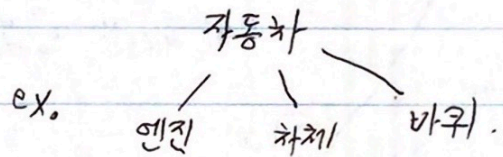 자동차
ex. 엔진 차체 바퀴.